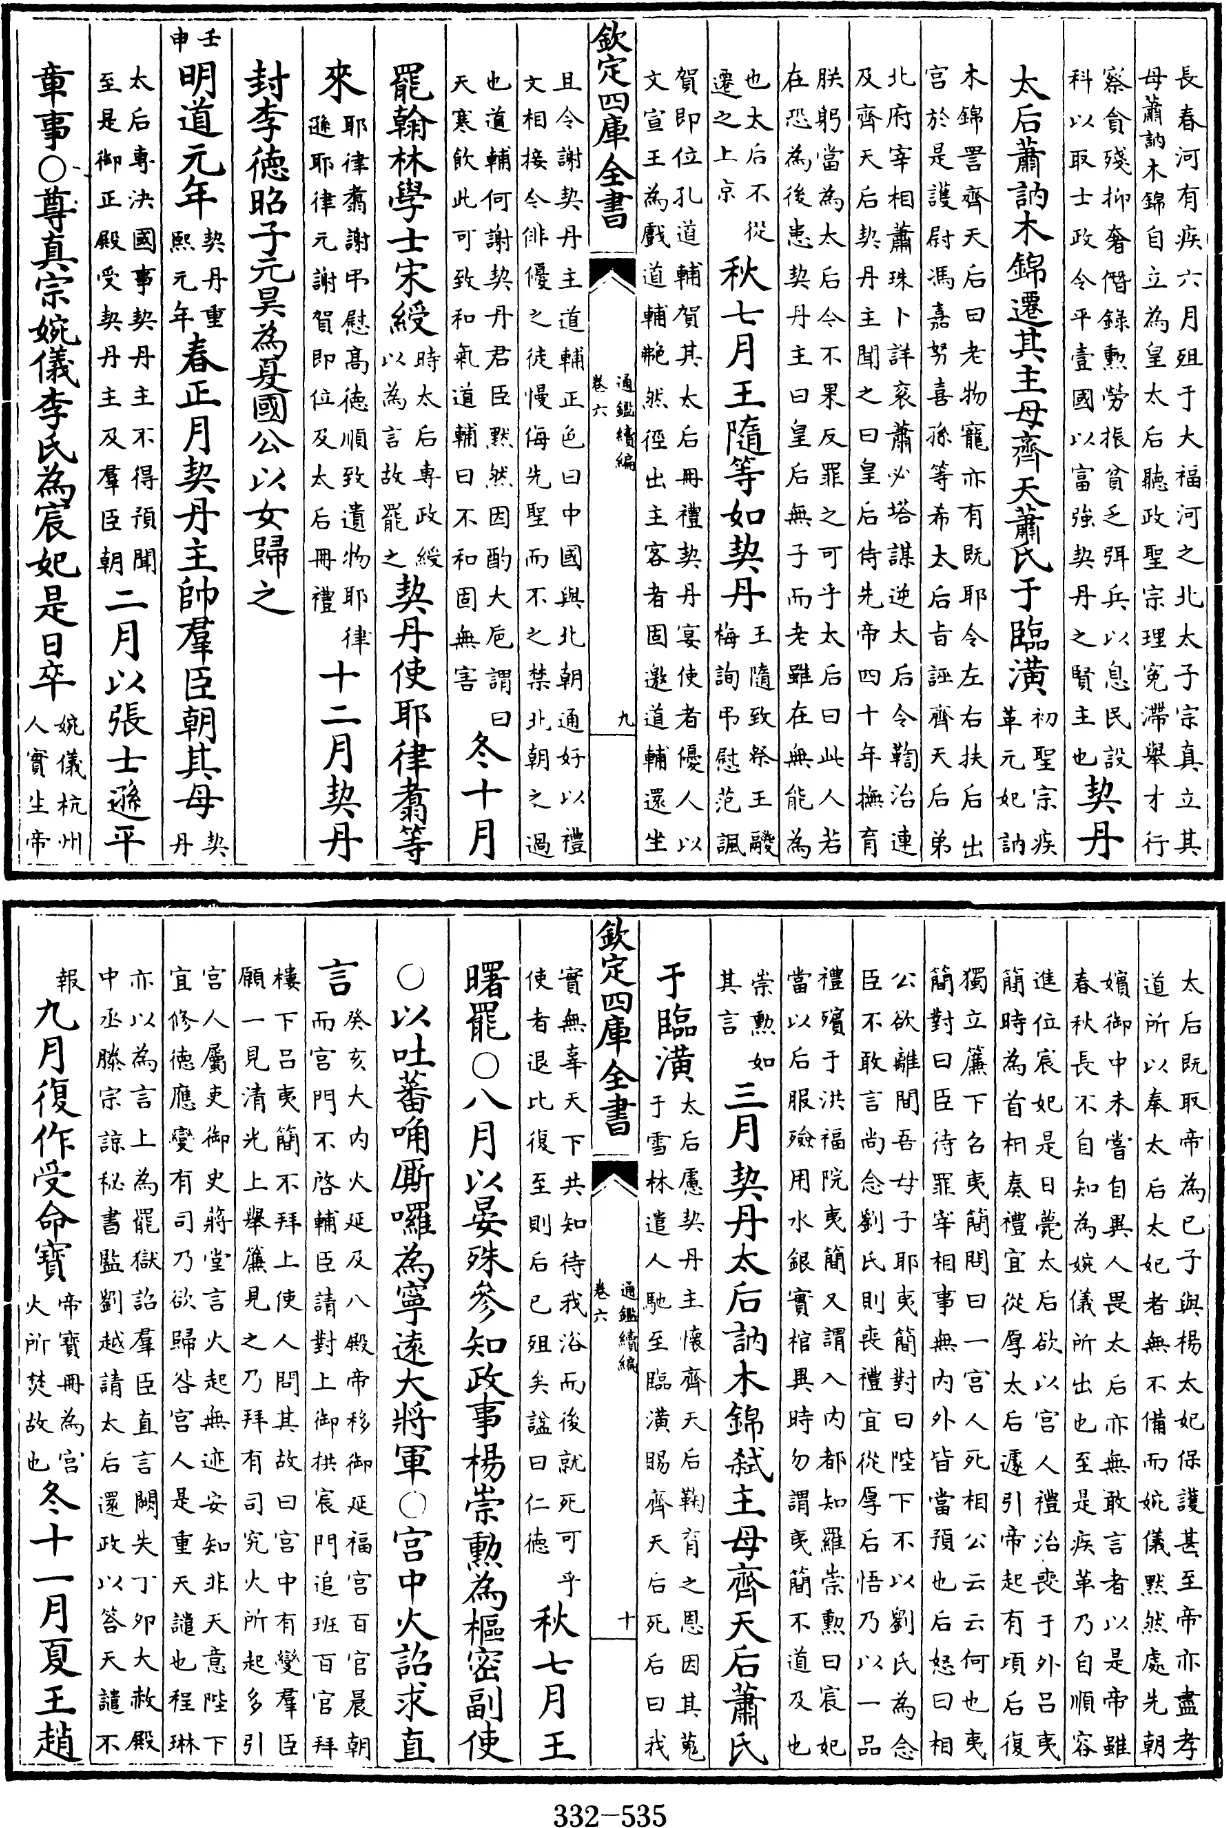 長春河有疾六月殂于大福河之北太子宗真立其
母蕭訥木錦自立為皇太后聽政聖宗理冤滯舉才行
察貪殘抑奢僭錄勲勞振貧乏弭兵以息民設
科以取士政令平壹國以富強契丹之賢主也
契丹
太后蕭訥木錦遷其主母齊天蕭氏于臨潢
初聖宗疾
革元妃訥
木錦詈齊天后曰老物寵亦有既耶令左右扶后出
宫於是護尉馮嘉努喜孫等希太后㫖誣齊天后弟
北府宰相蕭珠卜詳衮蕭必塔謀逆太后令鞫治連
及齊天后契丹主聞之曰皇后侍先帝四十年撫育
朕躬當為太后今不果反罪之可乎太后曰此人若
在恐為後患契丹主曰皇后無子而老雖在無能為
也太后不從
遷之上京
秋七月王隨等如契丹
王隨致祭王䁍
梅詢弔慰范諷
賀即位孔道輔賀其太后冊禮契丹宴使者優人以
文宣王為戲道輔艴然徑出主客者固邀道輔還坐
欽定四庫全書
通鑑續編
卷六
九
且令謝契丹主道輔正色曰中國與北朝通好以禮
文相接今俳優之徒慢侮先聖而不之禁北朝之過
也道輔何謝契丹君臣黙然因酌大巵謂曰
天寒飲此可致和氣道輔曰不和固無害
冬十月
罷翰林學士宋綬
時太后專政綬
以為言故罷之
契丹使耶律翥等
來
耶律翥謝弔慰髙德順致遺物耶律
遜耶律元謝賀即位及太后冊禮
十二月契丹
封李德昭子元昊為夏國公以女歸之
壬
申
明道元年
契丹重
熙元年
春正月契丹主帥羣臣朝其母
契
丹
太后專決國事契丹主不得預聞
至是御正殿受契丹主及羣臣朝
二月以張士遜平
章事○尊真宗婉儀李氏為宸妃是日卒
婉儀杭州
人實生帝
太后既取帝為已子與楊太妃保護甚至帝亦盡孝
道所以奉太后太妃者無不備而婉儀黙然處先朝
嬪御中未嘗自異人畏太后亦無敢言者以是帝雖
春秋長不自知為婉儀所出也至是疾革乃自順容
進位宸妃是日薨太后欲以宫人禮治喪于外吕夷
簡時為首相奏禮宜從厚太后遽引帝起有頃后復
獨立簾下召夷簡問曰一宫人死相公云云何也夷
簡對曰臣待罪宰相事無内外皆當預也后怒曰相
公欲離間吾母子耶夷簡對曰陛下不以劉氏為念
臣不敢言尚念劉氏則喪禮宜從厚后悟乃以一品
禮殯于洪福院夷簡又謂入内都知羅崇勲曰宸妃
當以后服殮用水銀實棺異時勿謂夷簡不道及也
崇勲如
其言
三月契丹太后訥木錦弑主母齊天后蕭氏
于臨潢
太后慮契丹主懷齊天后鞠育之恩因其蒐
于雪林遣人馳至臨潢賜齊天后死后曰我
欽定四庫全書
通鑑續編
卷六
十
實無辜天下共知待我浴而後就死可乎
使者退比復至則后已殂矣諡曰仁德
秋七月王
曙罷○八月以晏殊參知政事楊崇勲為樞密副使
○以吐蕃唃厮囉為寧遠大將軍○宫中火詔求直
言
癸亥大内火延及八殿帝移御延福宫百官晨朝
而宫門不啓輔臣請對上御拱宸門追班百官拜
樓下吕夷簡不拜上使人問其故曰宫中有變羣臣
願一見清光上舉簾見之乃拜有司究火所起多引
宫人屬吏御史蔣堂言火起無迹安知非天意陛下
宜修德應變有司乃欲歸咎宫人是重天譴也程琳
亦以為言上為罷獄詔羣臣直言闕失丁夘大赦殿
中丞滕宗諒秘書監劉越請太后還政以答天譴不
報
九月復作受命寳
帝寳冊為宫
火所焚故也
冬十一月夏王趙
332-535